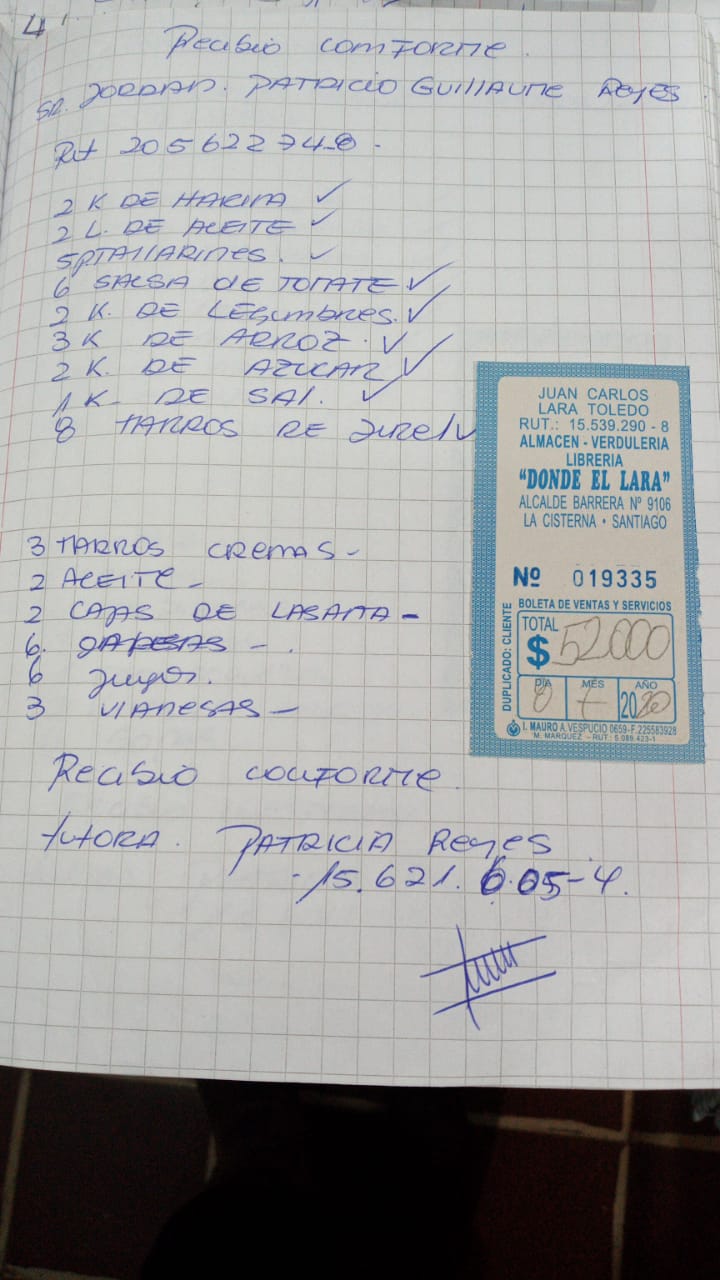 4
Recibio conforme.
SR. JORDAN. PATRICIO GUILLAUME Reyes.
Rut 20562274-8.
2 K DE HARINA ✓
2 L. DE ACEITE ✓
5 P TALLARINES. ✓
6 SALSA de TOMATE ✓
2 K. DE LEGUMBRES. ✓
3 K DE ARROZ. ✓
2 K. DE AZUCAR ✓
1 K. DE SAL. ✓
8 TARROS DE Jurel ✓
3 TARROS CREMAS -
2 ACEITE -
2 CAJAS DE LASAÑA -
6. - .
6 Jugos.
3 VIANESAS -
Recibio conforme.
tutora. PATRICIA Reyes
15.621.605-4.
JUAN CARLOS
LARA TOLEDO
RUT.: 15.539.290 - 8
ALMACEN - VERDULERIA
LIBRERIA
"DONDE EL LARA"
ALCALDE BARRERA Nº 9106
LA CISTERNA • SANTIAGO
Nº 019335
BOLETA DE VENTAS Y SERVICIOS
DUPLICADO: CLIENTE
TOTAL
$ 52000
DIA MES AÑO
8 7 2020
I. MAURO A. VESPUCIO 0659-F.225583928
M. MARQUEZ - RUT.: 5.089.423-1